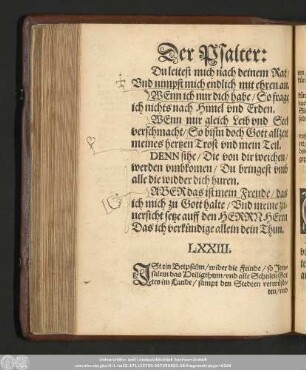 Der Psalter:
Du leitest mich nach deinem Rat/
Vnd nimpst mich endlich mit ehren an.
WEnn ich nur dich habe/ So frage
ich nichts nach Himel vnd Erden.
WEnn mir gleich Leib vnd Seel
verschmacht/ So bistu doch Gott allzeit
meines hertzen Trost vnd mein Teil.
DENN sihe/ Die von dir weichen/
werden vmbkomen/ Du bringest vmb
alle die widder dich huren.
ABER das ist mein Freude/ das
ich mich zu Gott halte/ Vnd meine zu-
uersicht setze auff den HERRN HErrn
Das ich verkündige allein dein Thun.
LXXIII.
IST ein Betpsalm/ wider die Feinde/ so Jeru-
salem das Heiligthum/ vnd alle Schulen Got
tes im Lande/ sampt den Stedten verwüste-
ten/ vnd